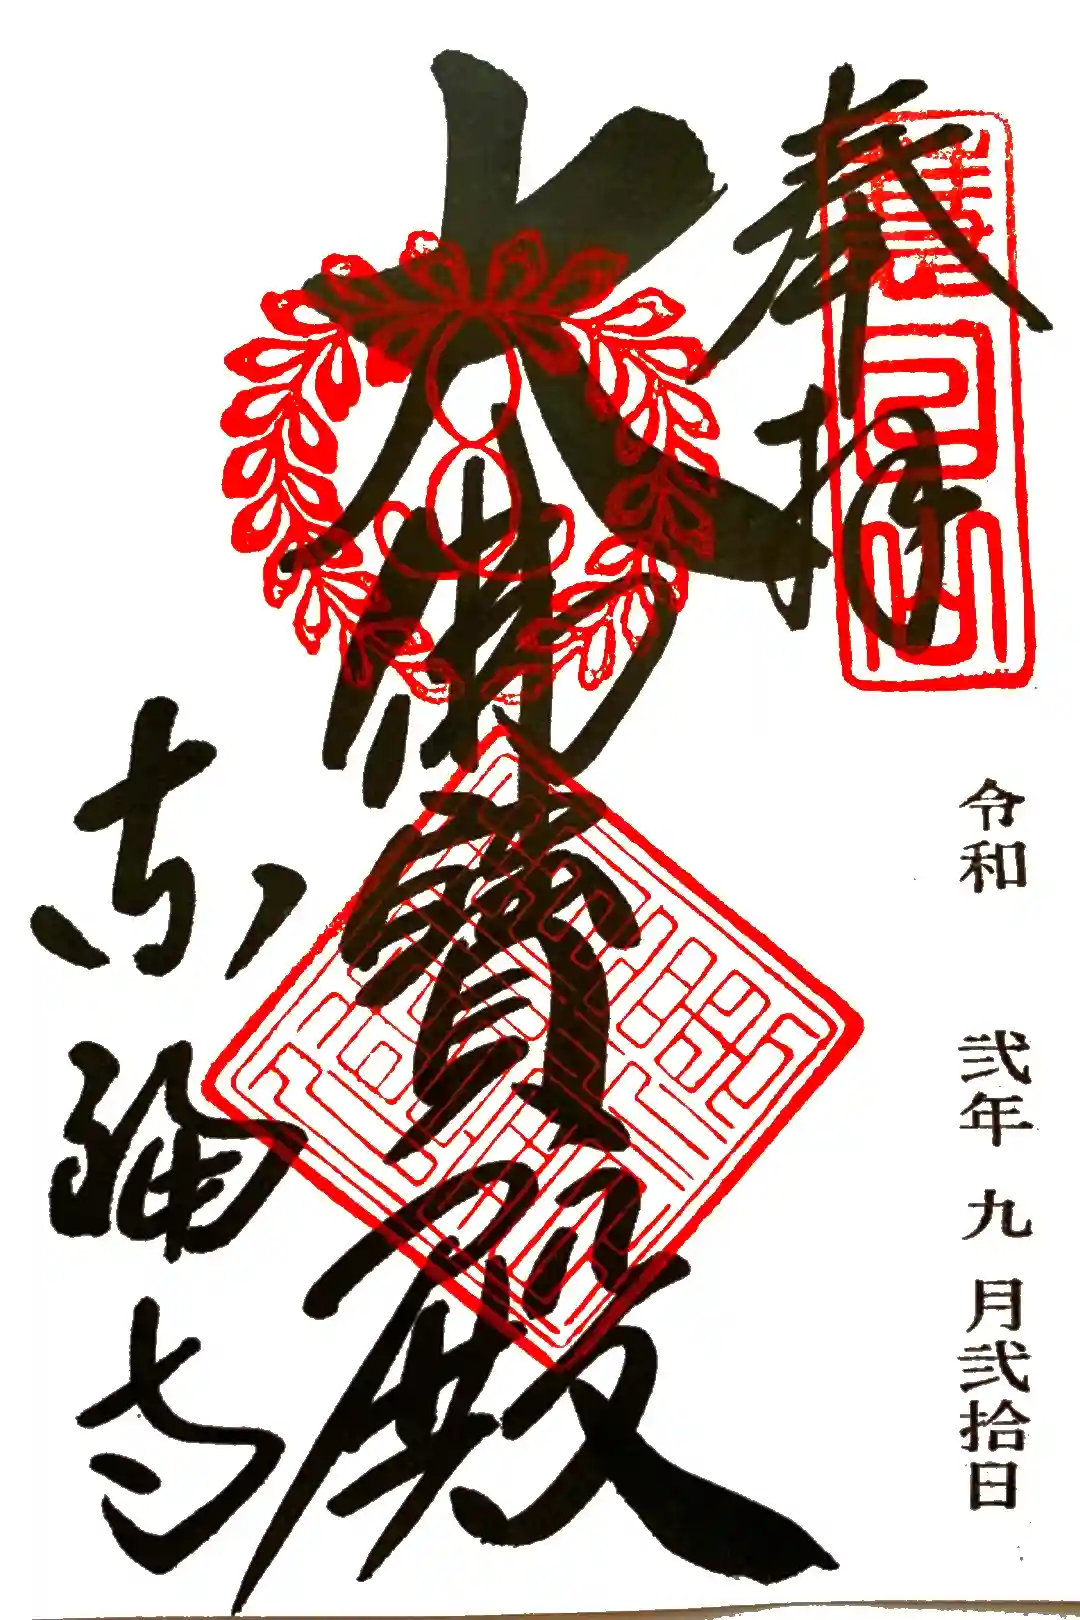 奉拝
慧日山
令和 弐年 九月弐拾日
大佛寶殿
東福寺